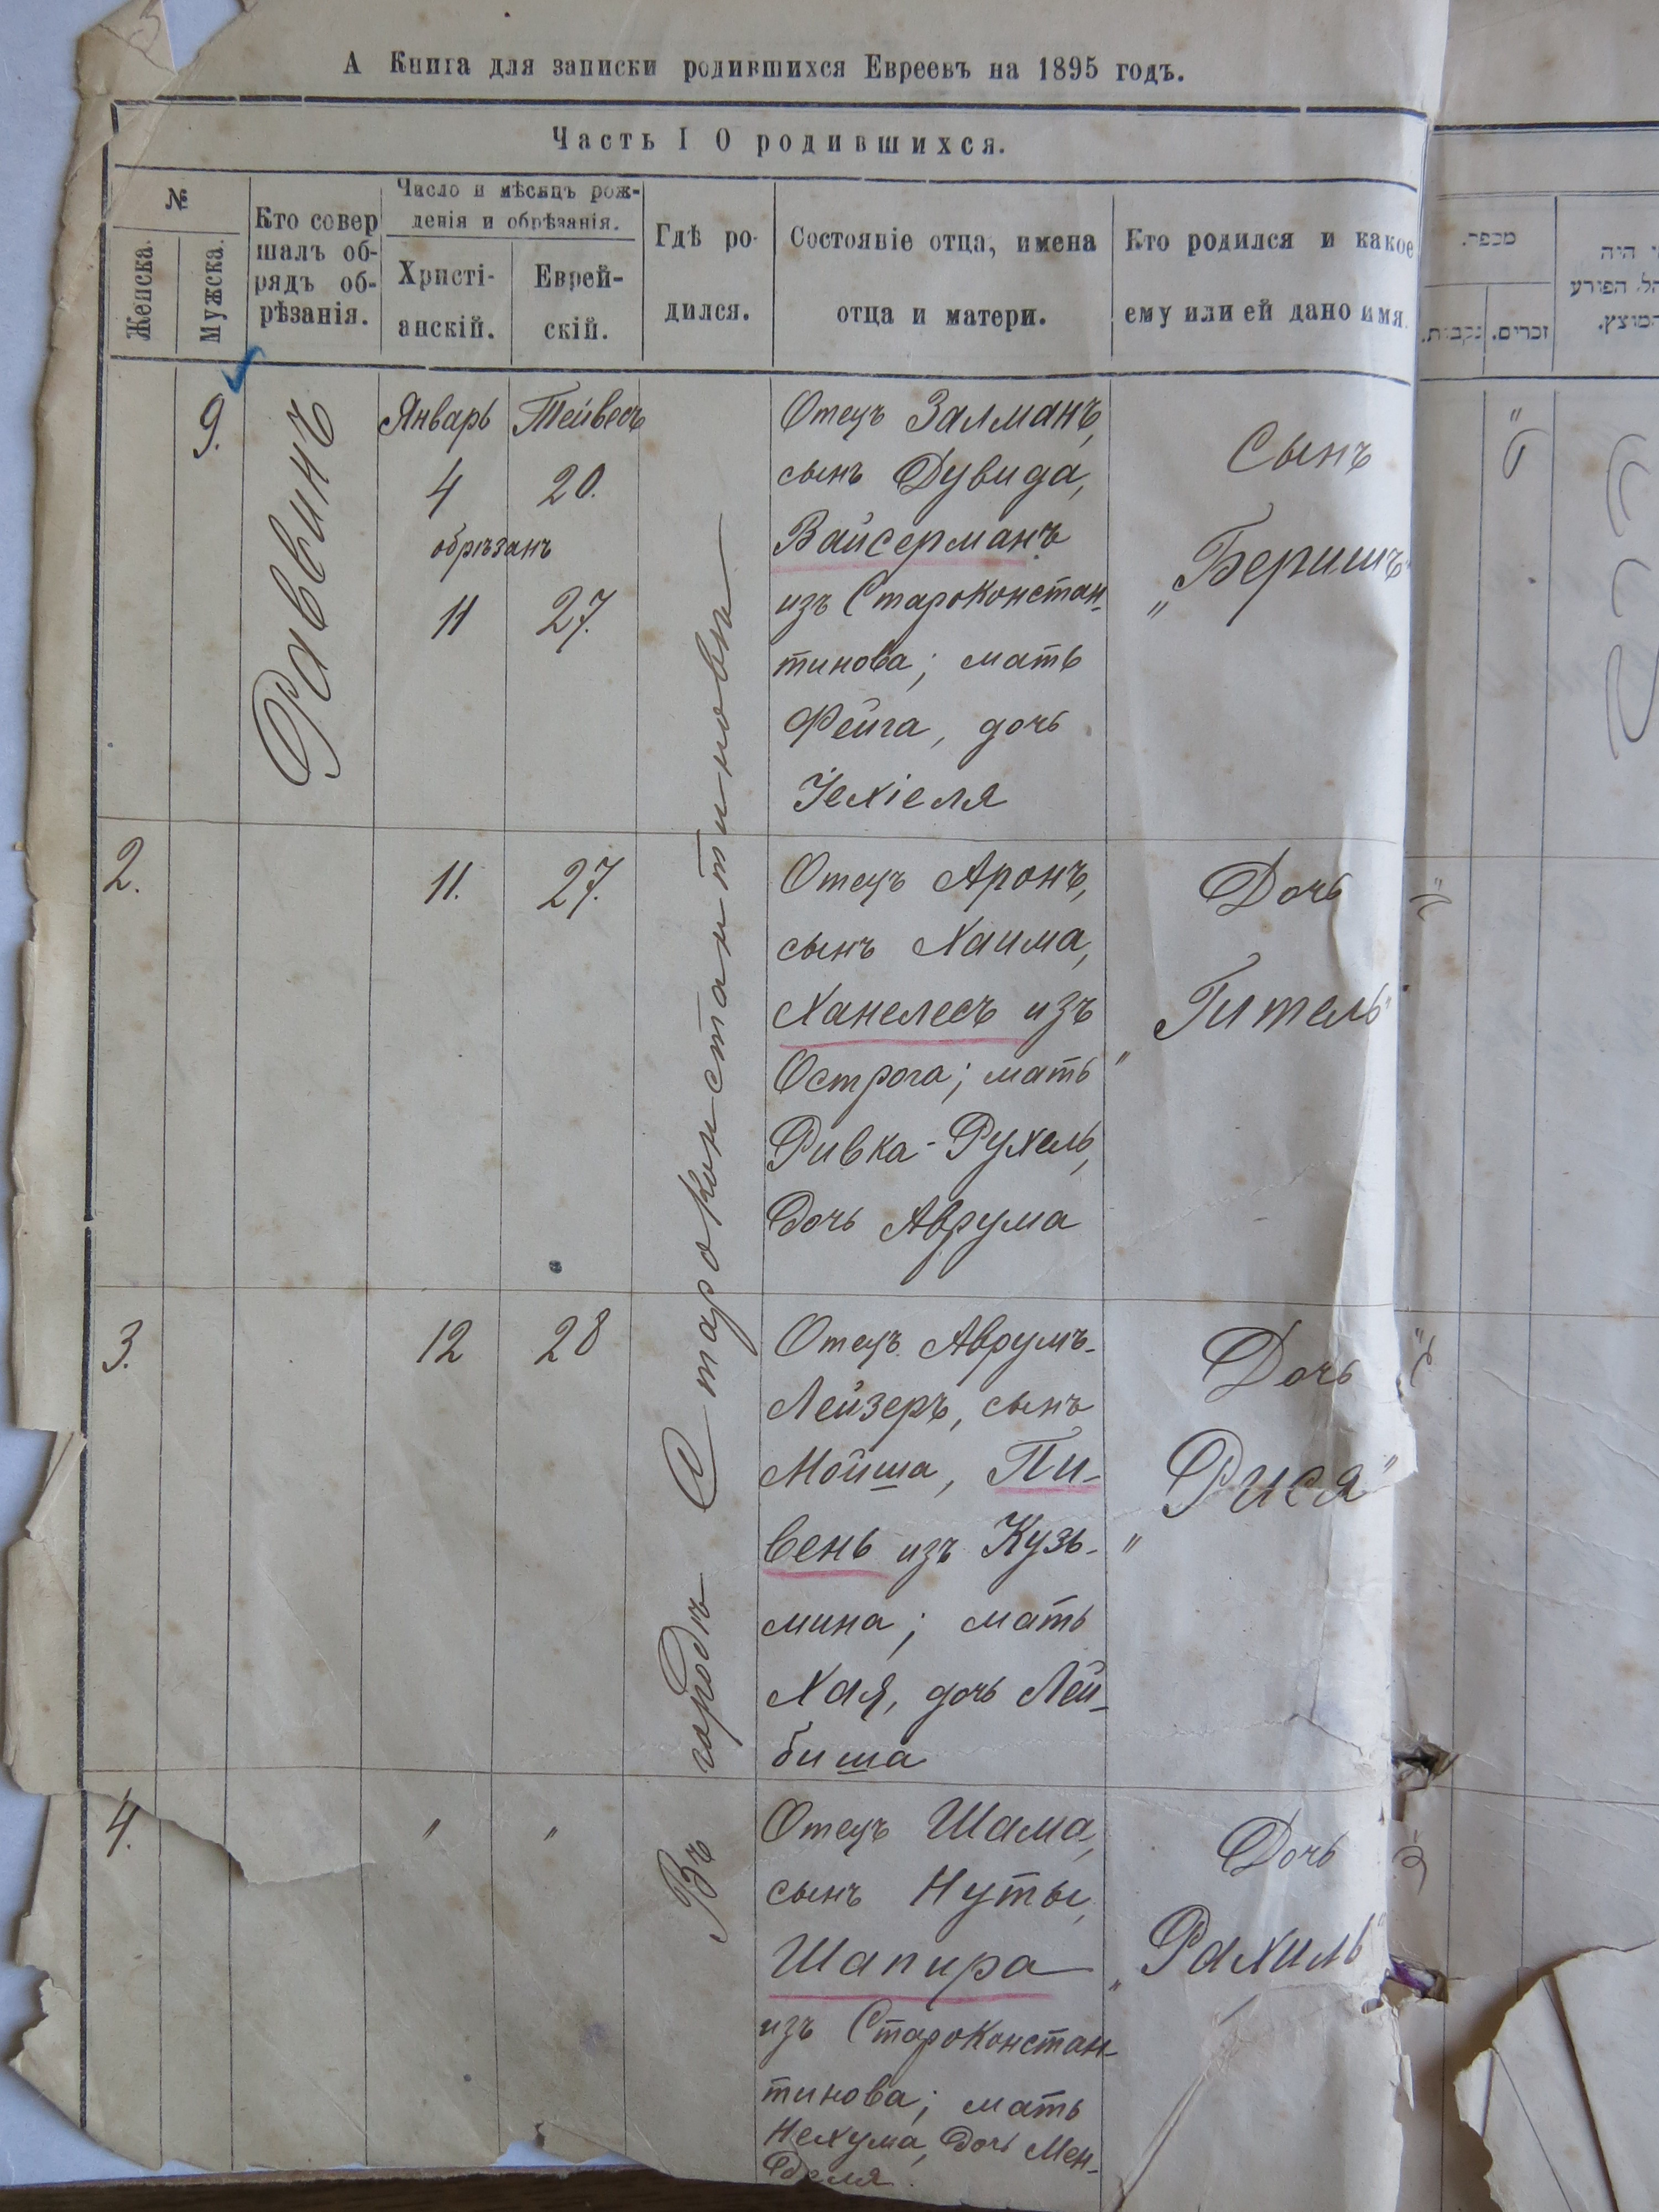 А Книга для записки родившихся Евреевъ на 1895 годъ.
Часть I О родившихся.
№
Женска.
Мужска.
Кто совер
шалъ об-
рядъ об-
рѣзанія.
Число и мѣсяцъ рож-
денія и обрѣзанія.
Христі-
анскій.
Еврей-
скій.
Гдѣ ро-
дился.
Состояніе отца, имена
отца и матери.
Кто родился и какое
ему или ей дано имя.
מספר.
נקבות.
זכרים.
היה
הפורע
המוצץ.
9.
Раввинъ
Январь
4
обрѣзанъ
11
Тейвесъ
20.
27.
Въ городѣ Староконстантиновѣ
Отецъ Залманъ,
сынъ Дувида,
Вайсерманъ
изъ Староконстан-
тинова; мать
Фейга, дочь
Іехіеля
Сынъ
„Беришъ“
2.
11.
27.
Отецъ Аронъ,
сынъ Хаима,
Ханелесъ изъ
Острога; мать
Ривка-Рухель,
дочь Аврума
Дочь
„Гитель“
3.
12
28
Отецъ Аврумъ-
Лейзеръ, сынъ
Мойша, Пи-
вень изъ Кузь-
мина; мать
Хая, дочь Лей-
биша
Дочь
„Рися“
4.
"
"
Отецъ Шама,
сынъ Нуты,
Шапира
изъ Староконстан-
тинова; мать
Нехума, дочь Мен-
деля.
Дочь
„Рахиль“